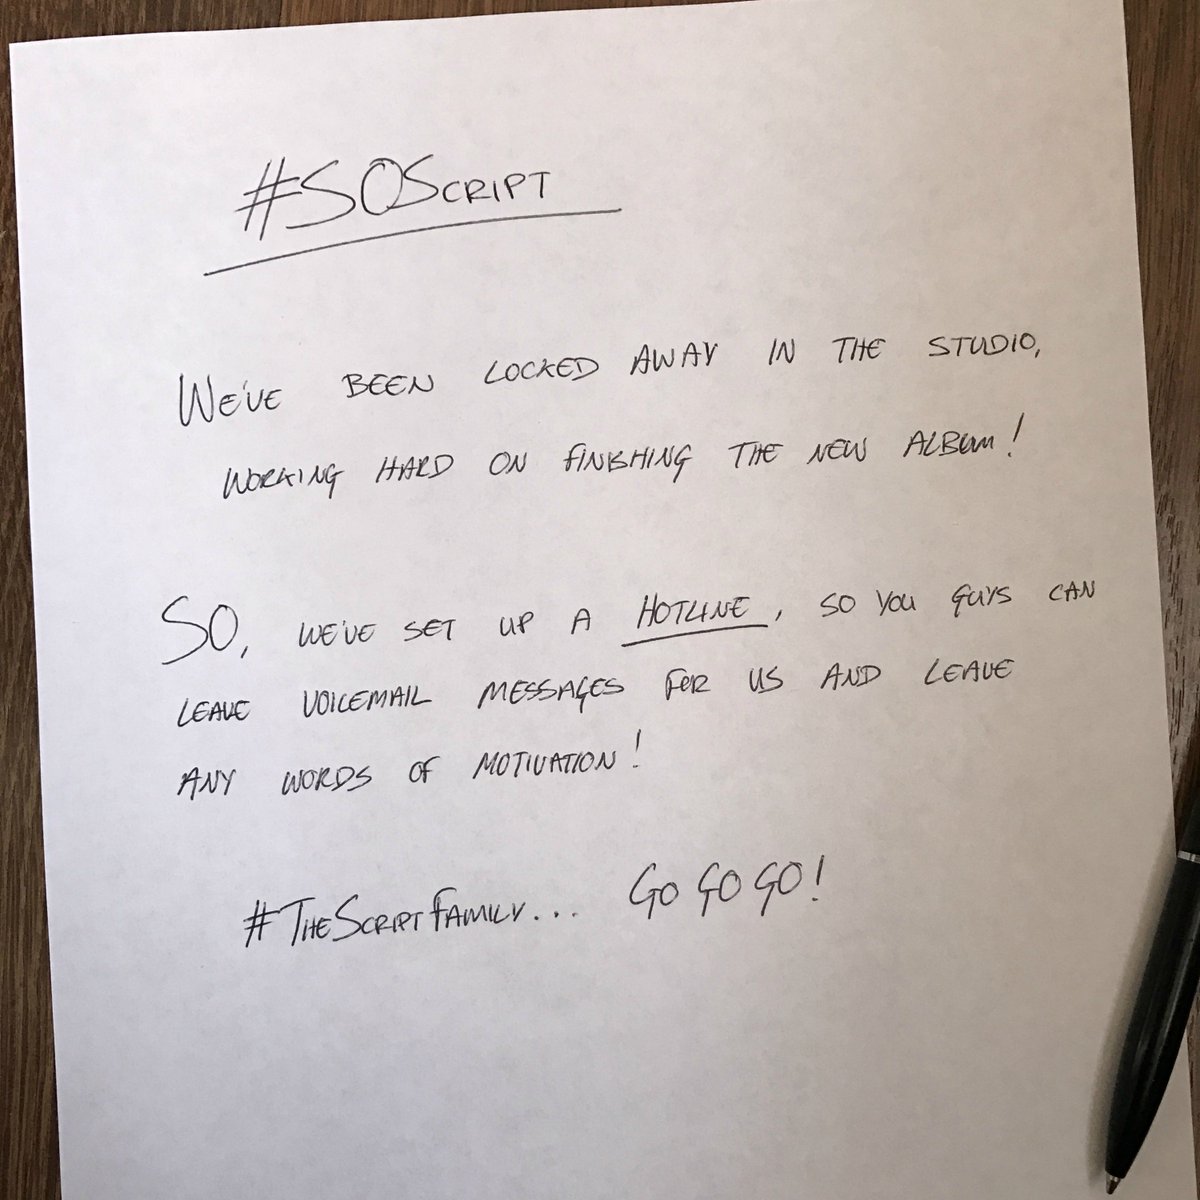 #SOSCRIPT
WE'VE BEEN LOCKED AWAY IN THE STUDIO,
WORKING HARD ON FINISHING THE NEW ALBUM!
SO, WE'VE SET UP A HOTLINE, SO YOU GUYS CAN
LEAVE VOICEMAIL MESSAGES FOR US AND LEAVE
ANY WORDS OF MOTIVATION!
#THESCRIPTFAMILY... GO GO GO!